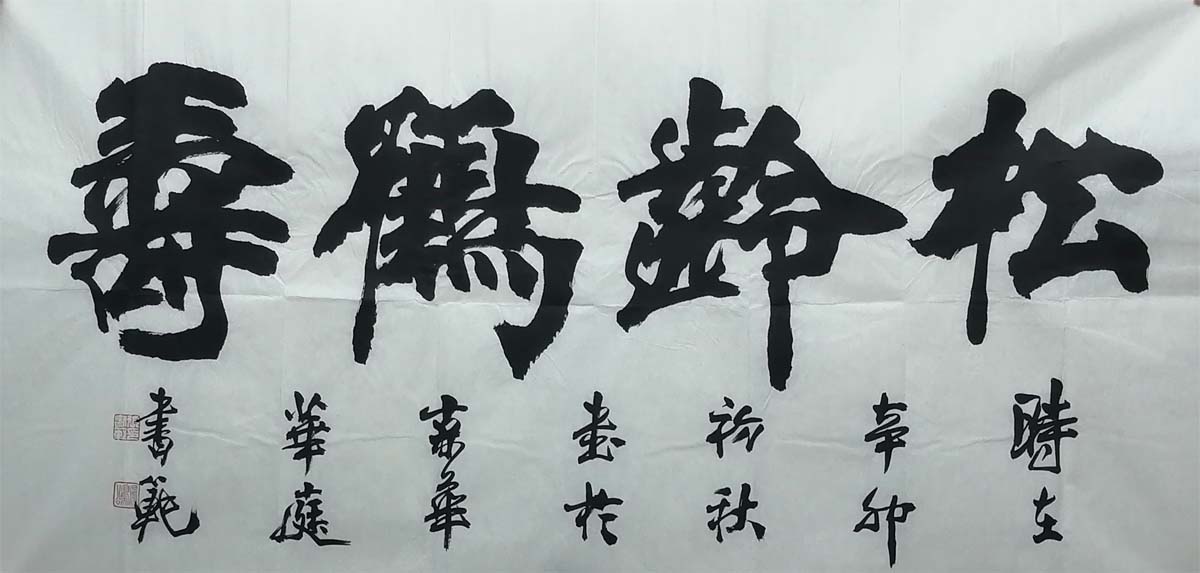 松齡鶴壽
時在
辛卯
初秋
書於
華
華庭
書範